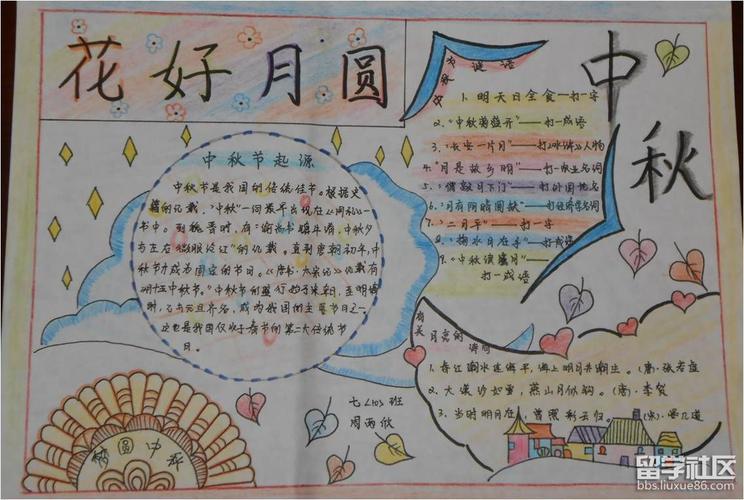 花好月圆
中秋
中秋节起源
中秋节是我国的传统佳节。根据史
籍的记载，"中秋"一词最早出现在《周礼》一
书中。到魏晋时，有"谕尚书镇牛渚，中秋夕
与左右微服泛江"的记载。直到唐朝初年，中
秋节才成为固定的节日。《唐书·太宗记》记载有
"八月十五中秋节"。中秋节的盛行始于宋朝，至明清
时，已与元旦齐名，成为我国的主要节日之一。
这也是我国仅次于春节的第二大传统节
日。
中秋谜语
1. 明天日全食—打一字
2. "中秋菊盛开"——打一成语
3. "长安一片月"——打《水浒》人物
4. "月是故乡明"——打一
5. "僧敲月下门"——打外国地名
6. "月有阴晴圆缺"——打经济学名词
7. "二月平"——打一字
8. "掬水月在手"——打成语
9. "中秋
打一成语
有关月亮的诗词
1. 春江潮水连海平，海上明月共潮生。（唐）张若虚
2. 大漠沙如雪，燕山月似钩。（唐）李贺
3. 当时明月在，曾照彩云归。（宋）晏几道
七〈10〉班
周雨欣
情圆中秋
留学社区
bbs.liuxue86.com